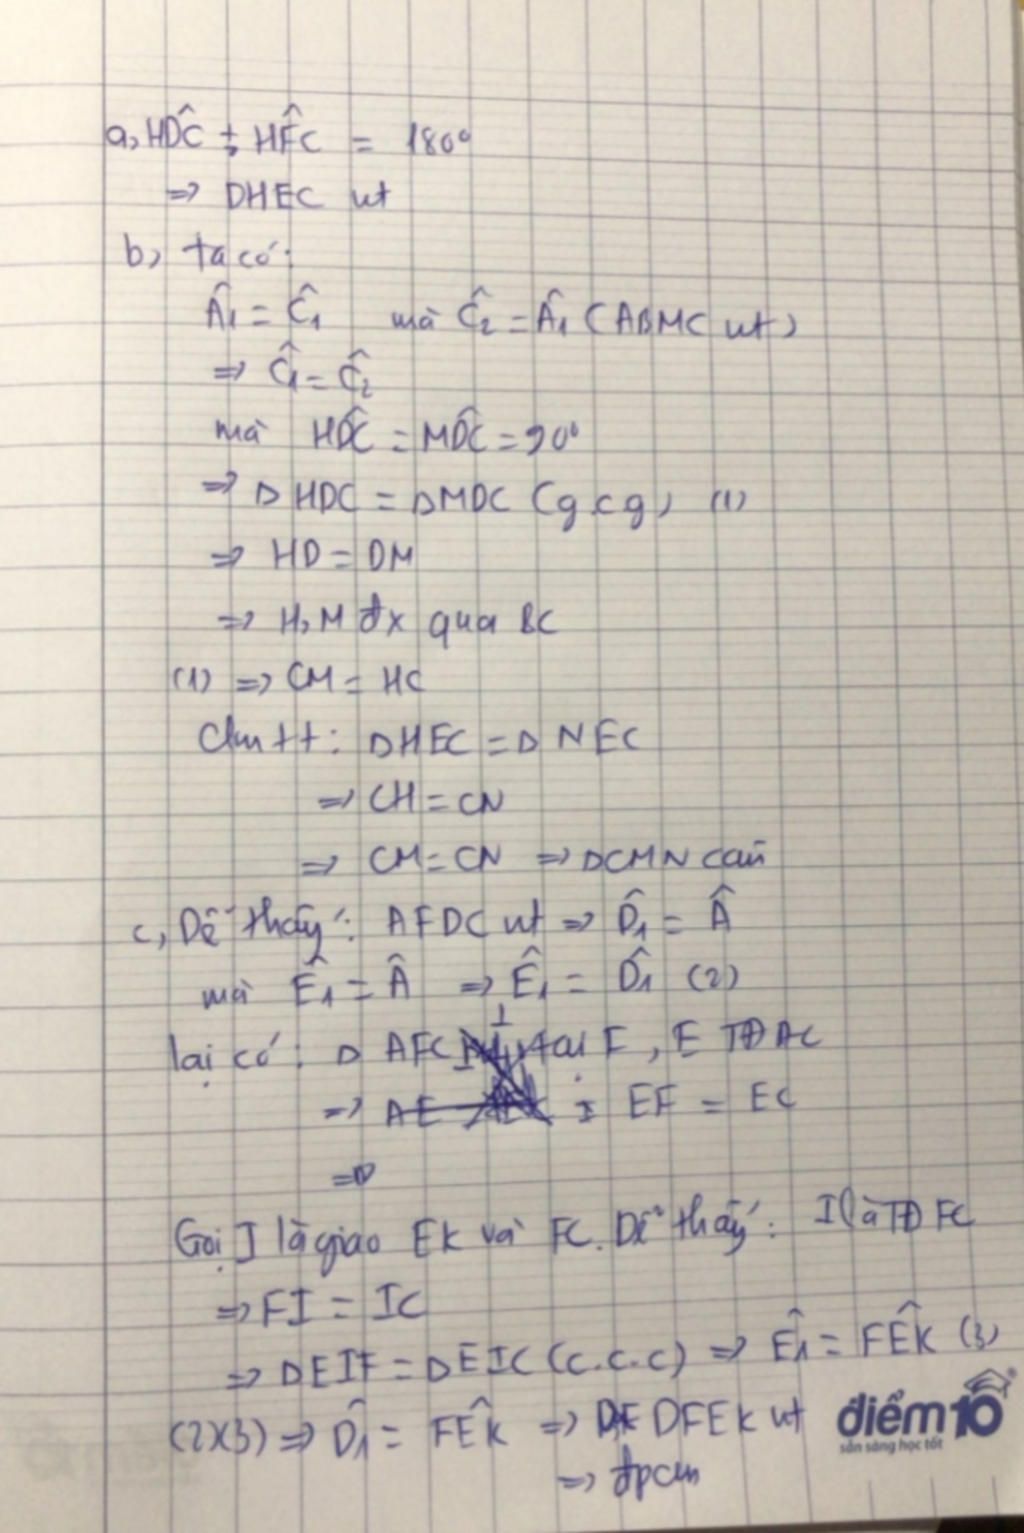 a, HD̂C + HF̂C = 180°
=> DHEC nt
b, ta có:
Â₁ = Ĉ₁ mà Ĉ₂ = Â₁ (ABMC nt)
=> Ĉ₁ = Ĉ₂
mà HD̂C = MD̂C = 90°
=> Δ HDC = Δ MDC (g.c.g) (1)
=> HD = DM
=> H, M đx qua BC
(1) => CM = HC
Cmtt: Δ HEC = Δ NEC
=> CH = CN
=> CM = CN => Δ CMN cân
c, Dễ thấy: AFDC nt => D̂₁ = Â
mà Ê₁ = Â => Ê₁ = D̂₁ (2)
lại có: Δ AFC ⊥ tại F, E TĐ AC
=> EF = EC
=>
Gọi I là giao EK và FC. Dễ thấy: I là TĐ FC
=> FI = IC
=> Δ EIF = Δ EIC (c.c.c) => Ê₁ = FÊK (3)
(2)(3) => D̂₁ = FÊK => DFEK nt
=> đpcm
điểm10
sẵn sàng học tốt